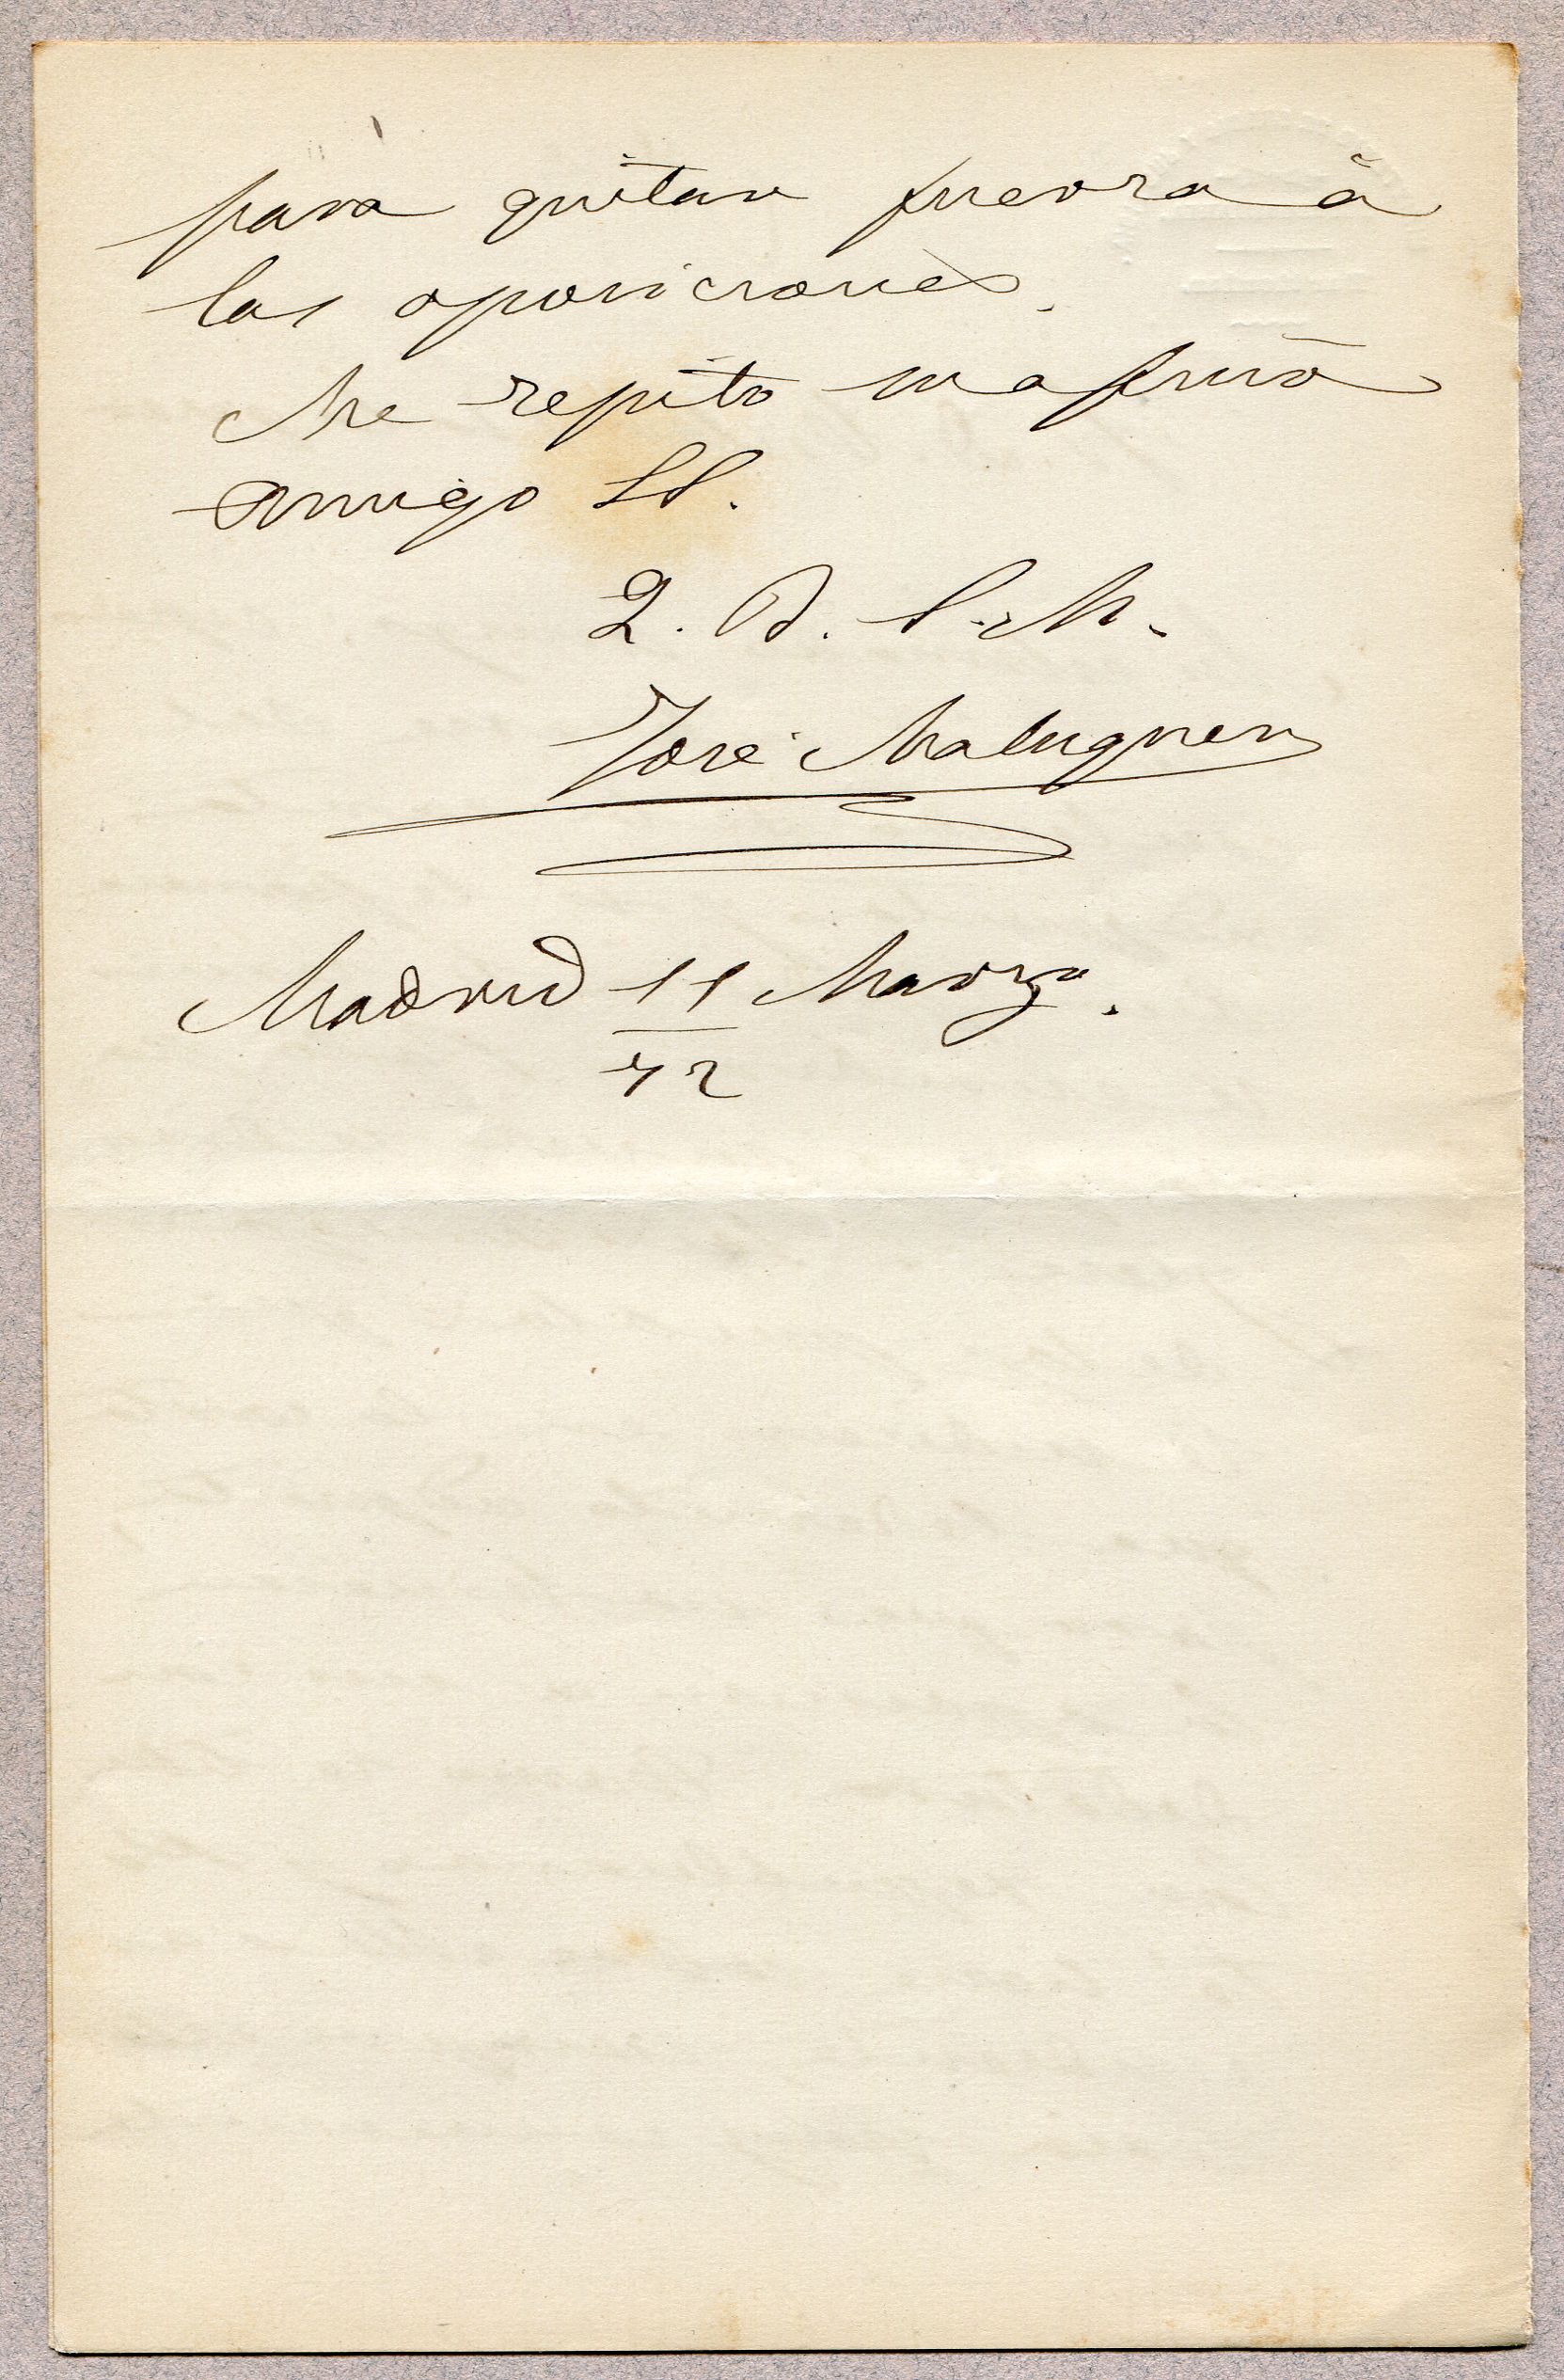 para quitar fuerza á
las oposiciones.
Me repito su afmo
amigo SS.
Q. B. S. M.
José Maluquer
Madrid 11 Marzo.
72